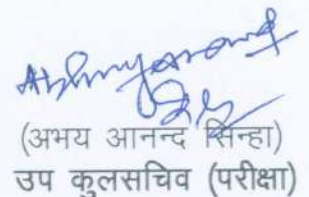 (अभय आनन्द सिन्हा)
उप कुलसचिव (परीक्षा)